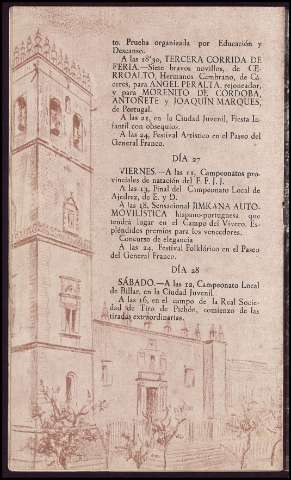 to. Prueba organizada por Educación y
Descanso.
A las 18'30, TERCERA CORRIDA DE
FERIA.—Siete bravos novillos, de CE-
RROALTO, Hermanos Cembrano, de Cá-
ceres, para ANGEL PERALTA, rejoneador,
y para MORENITO DE CORDOBA,
ANTOÑETE y JOAQUIN MARQUES,
de Portugal.
A las 21, en la Ciudad Juvenil, Fiesta In-
fantil con obsequios.
A las 24, Festival Artístico en el Paseo del
General Franco.
DÍA 27
VIERNES.—A las 11, Campeonatos pro-
vinciales de natación del F. F. J. J.
A las 13, Final del Campeonato Local de
Ajedrez, de E. y D.
A las 18, Sensacional JIMKANA AUTO-
MOVILISTICA hispano-portuguesa que
tendrá lugar en el Campo del Vivero. Es-
pléndidos premios para los vencedores.
Concurso de elegancia
A las 24, Festival Folklórico en el Paseo
del General Franco.
DÍA 28
SÁBADO.—A las 12, Campeonato Local
de Billar, en la Ciudad Juvenil.
A las 16, en el campo de la Real Socie-
dad de Tiro de Pichón, comienzo de las
tiradas extraordinarias.